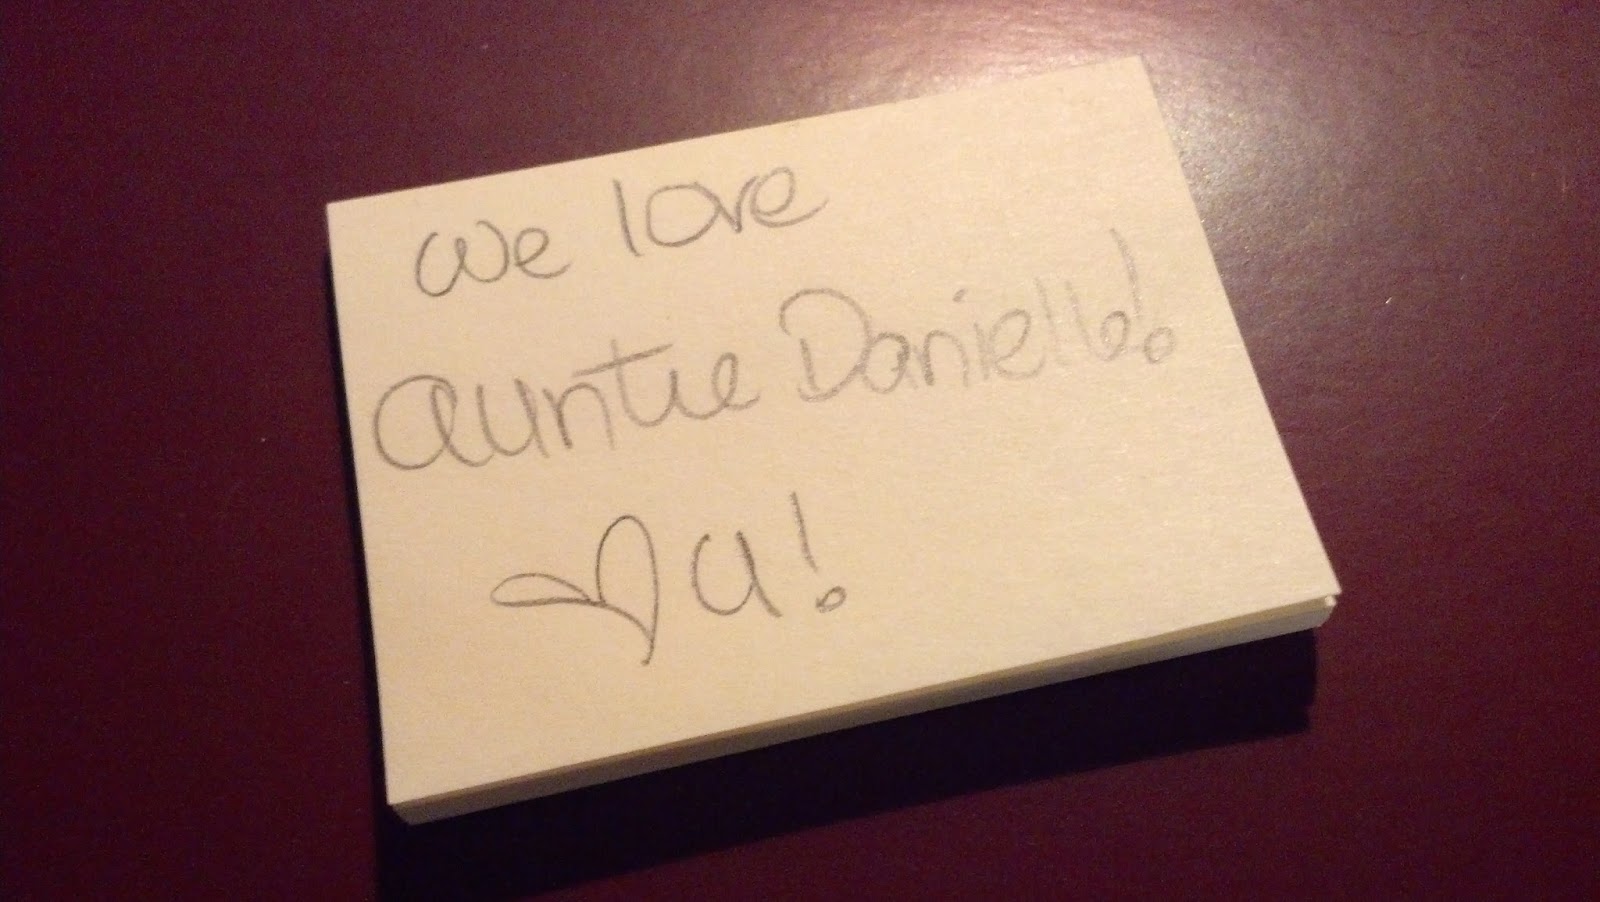 We love
Auntie Danielle!
♡ U!